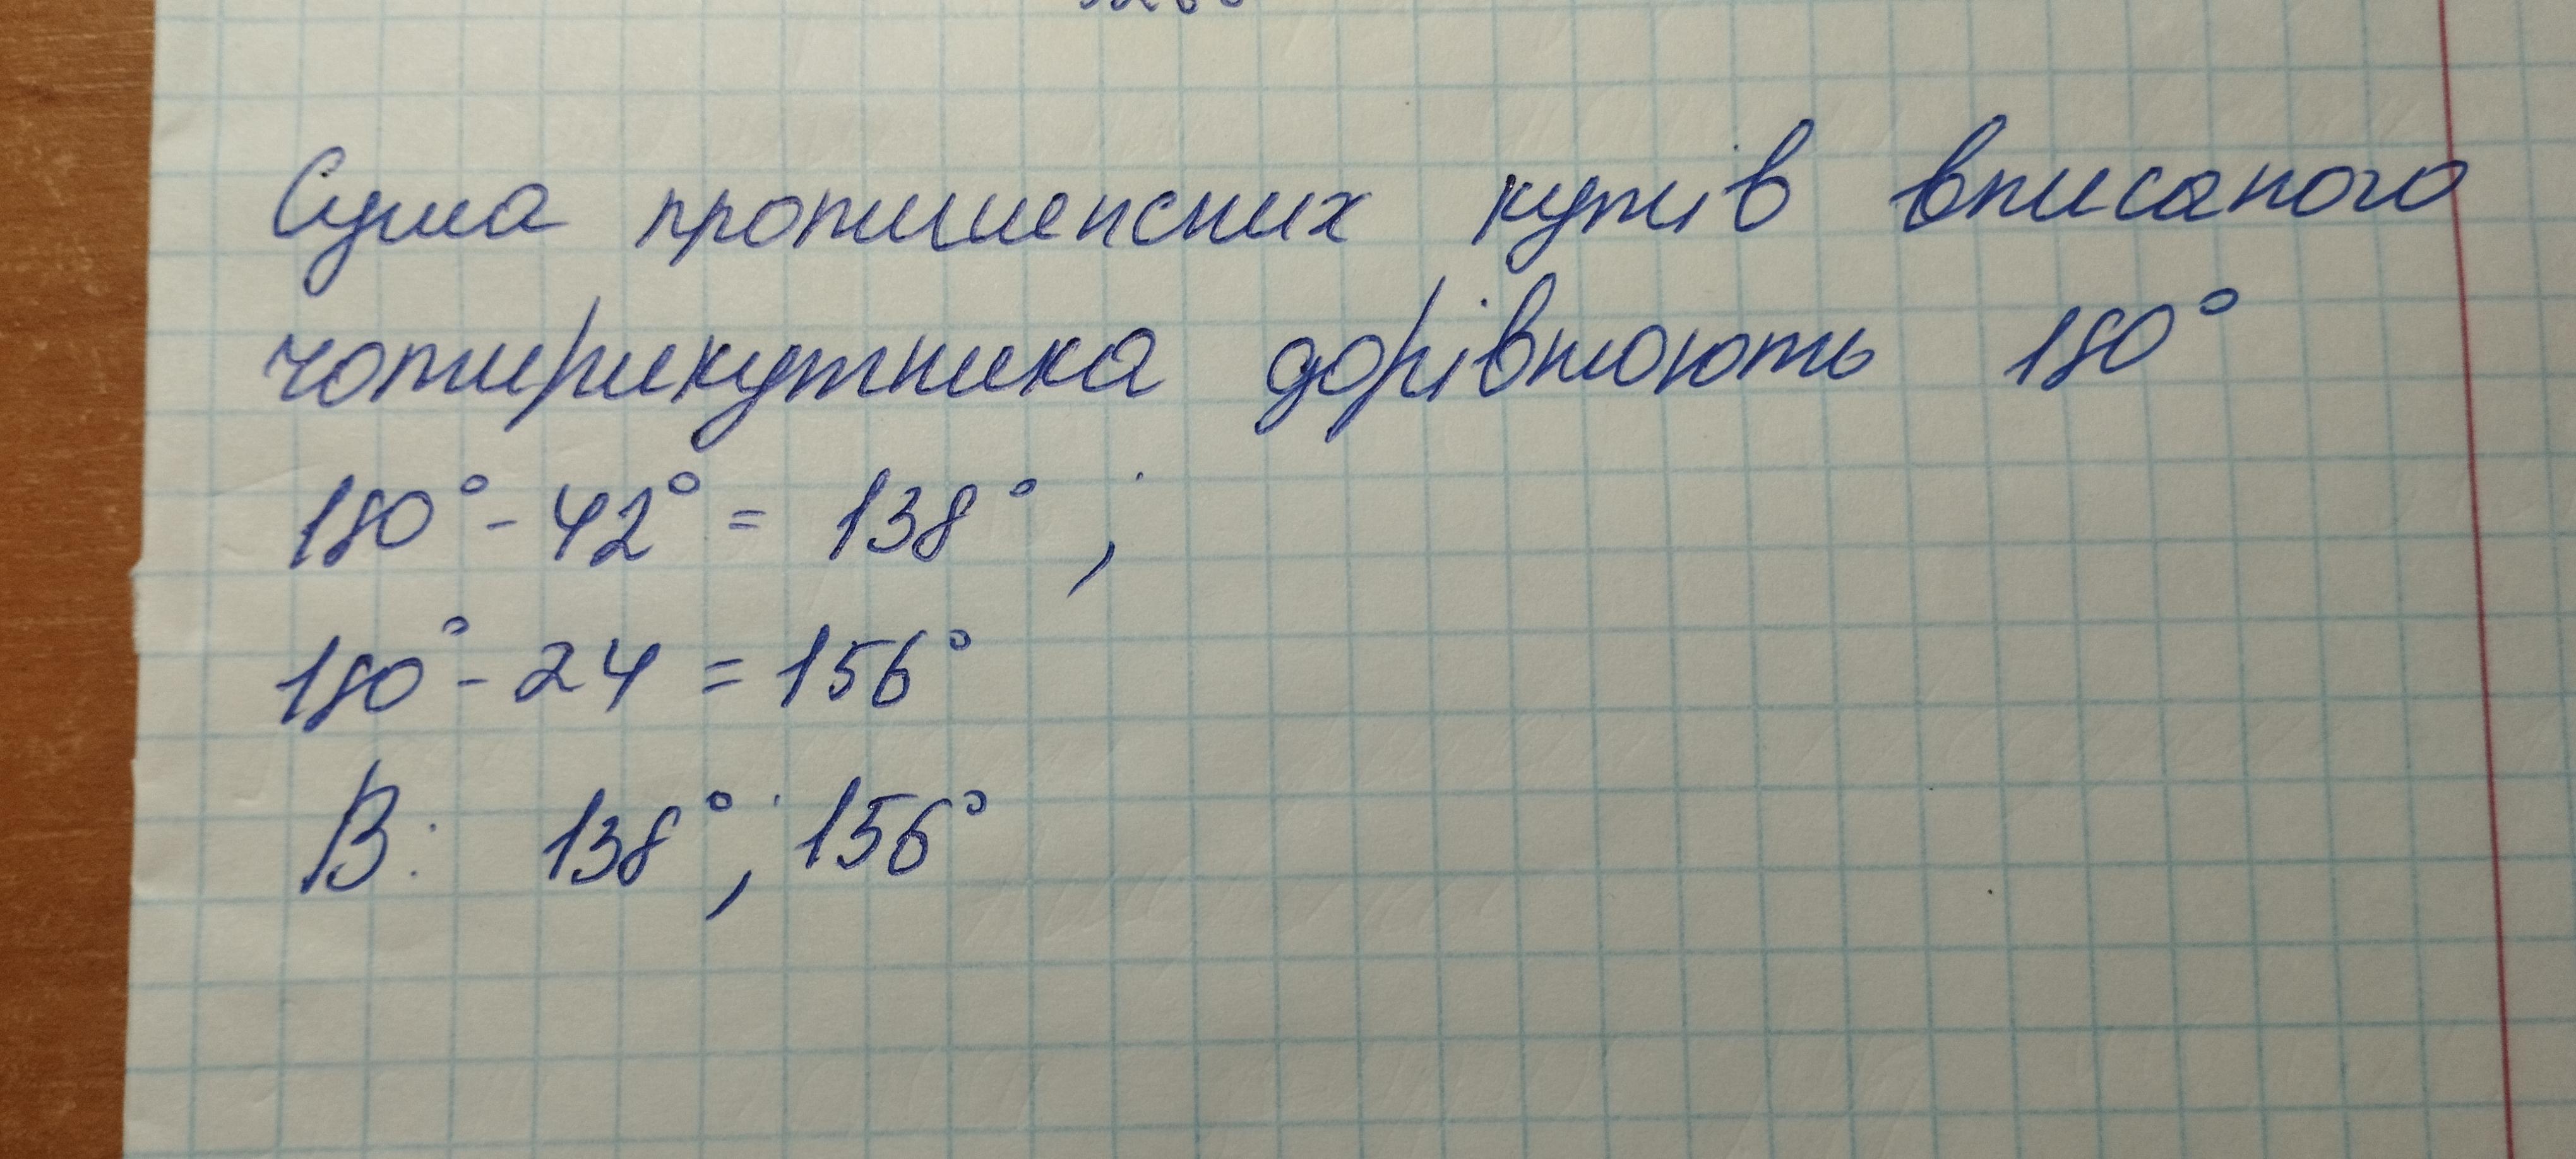 Сума протилежних кутів вписаного
чотирикутника дорівнюють 180°
180° - 42° = 138° ;
180° - 24 = 156°
В: 138° ; 156°